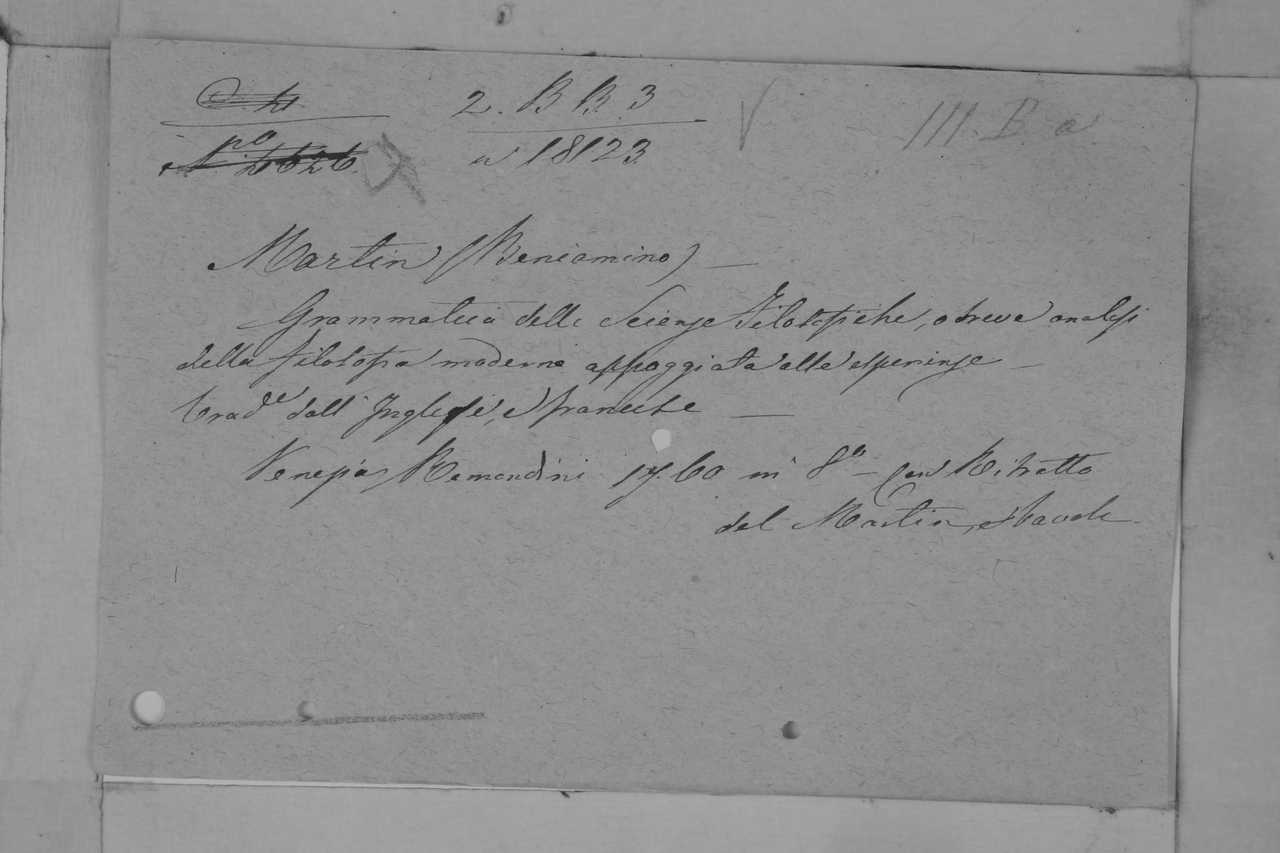 2. B B. 3
III. B. a
N.ro 2626.
a 18123
Martin (Beniamino) —
Grammatica delle Scienze Filosofiche, o breve analisi
della filosofia moderna appoggiata alle esperienze —
Trad.e dall' Inglese, e francese —
Venezia Remondini 1760 in 8.o — con Ritratto
del Martin, e tavole